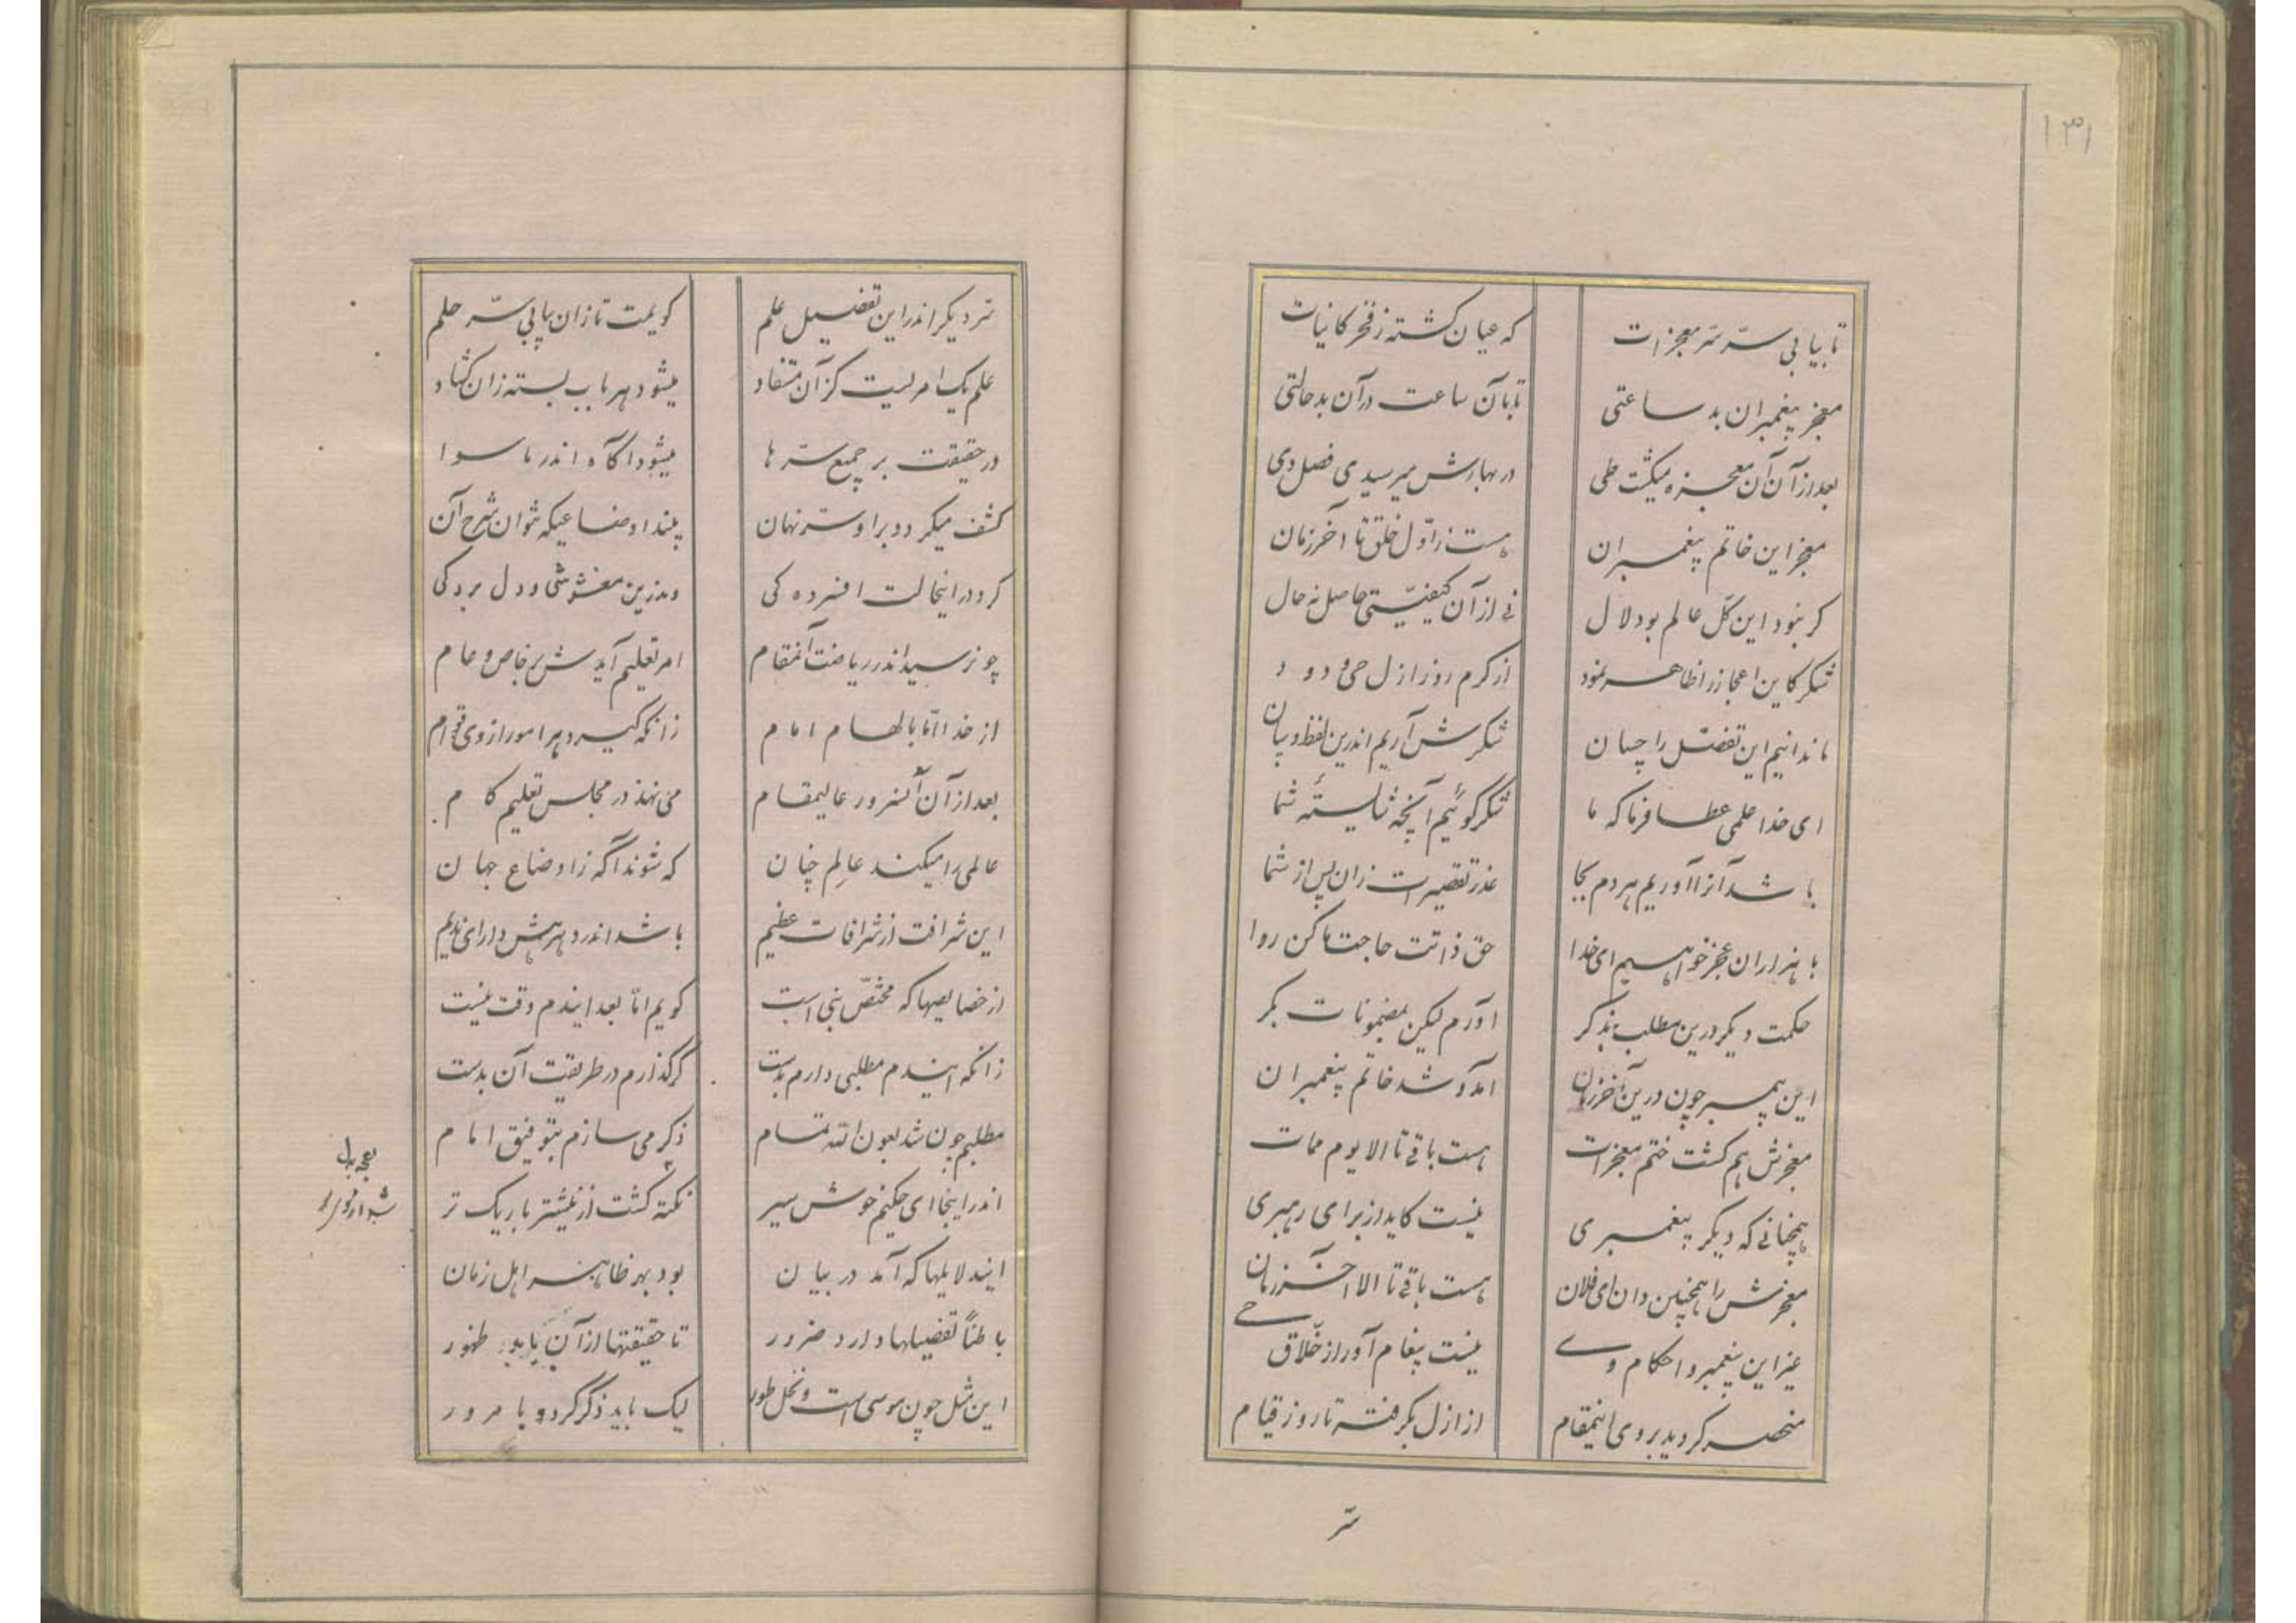 ۱۳۱
تا بیابی سرّ سرّ معجزات که عیان گشته ز فخر کاینات
معجز پیغمبران بد ساعتی تا بآن ساعت در آن بد حالتی
بعد از آن آن معجزه میگشت طی در بهارش میرسیدی فصل دی
معجز این خاتم پیغمبران هست ز اوّل خلق تا آخر زمان
کر نبود این کل عالم بود لال نی از آن کیفیّتی حاصل نه حال
شکر کاین اعجاز را ظاهر نمود از کرم روز ازل حیّ ودود
ما ندانیم این تفضّل را چسان شکرش آریم اندرین لفظ و بیان
ای خدا علمی عطا فرما که ما شکر گوئیم آنچه شایستهٔ شما
باشد آنرا آوریم هر دم بجا عذر تقصیرات زان پس از شما
با هزاران عجز خواهیم ای خدا حق ذاتت حاجت ما کن روا
حکمت دیکر درین مطلب بذکر آورم لیکن بمضمونات بکر
این پیمبر چون درین آخر زمان آمد و شد خاتم پیغمبران
معجزش هم کشت ختم معجزات هست باقی تا الا یوم ممات
همچنانی که دیکر پیغمبری نیست کاید از برای رهبری
معجزش را همچنین دان ای فلان هست باقی تا الا آخر زمان
غیر این پیغمبر و احکام وی نیست پیغام آور از خلّاق حی
منحصر کردید بر وی اینمقام از ازل بکرفته تا روز قیام
سرّ
سرّ دیکر اندر این تفضیل علم کویمت تا زان بیابی سرّ حلم
علم یک امریست کز آن مستفاد میشود هر باب بسته زان کشاد
در حقیقت بر جمیع سرّها میشود آکاه اندر ماسوا
کشف میکردد بر او سرّ نهان بیند اوضاعیکه نتوان شرح آن
کرد در اینحالت افسرده کی وندرین مغشوشی و دل بردکی
چونرسید اندر ریاضت آنمقام امر تعلیم آیدش بر خاص و عام
از خدا امّا بالهام امام زانکه کیرد هر امور از وی قوام
بعد از آن آنسرور عالیمقام می نهد در مجلس تعلیم کام
عالمی را میکند عالِم چنان که شوند آکه ز اوضاع جهان
این شرافت از شرافات عظیم باشد اندر دهر بهش دارای ندیم
از خصایصها که مختصّ نبی است کویم امّا بعد ایندم وقت نیست
زانکه ایندم مطلبی دارم بدست کر گذارم در طریقت آن بدست
مطلبم چون شد بعون الله تمام ذکر می سازم بتوفیق امام
اندر اینجا ای حکیم خوش سیر نکته کشت از پیشتر باریک تر
ایندلایلها که آمد در بیان بود بهر ظاهر اهل زمان
باطناً تفضیلها دارد ضرور تا حقیقتها از آن یابد ظهور
این مثل چون موسی است و نخل طور لیک باید ذکر کردد با مرور